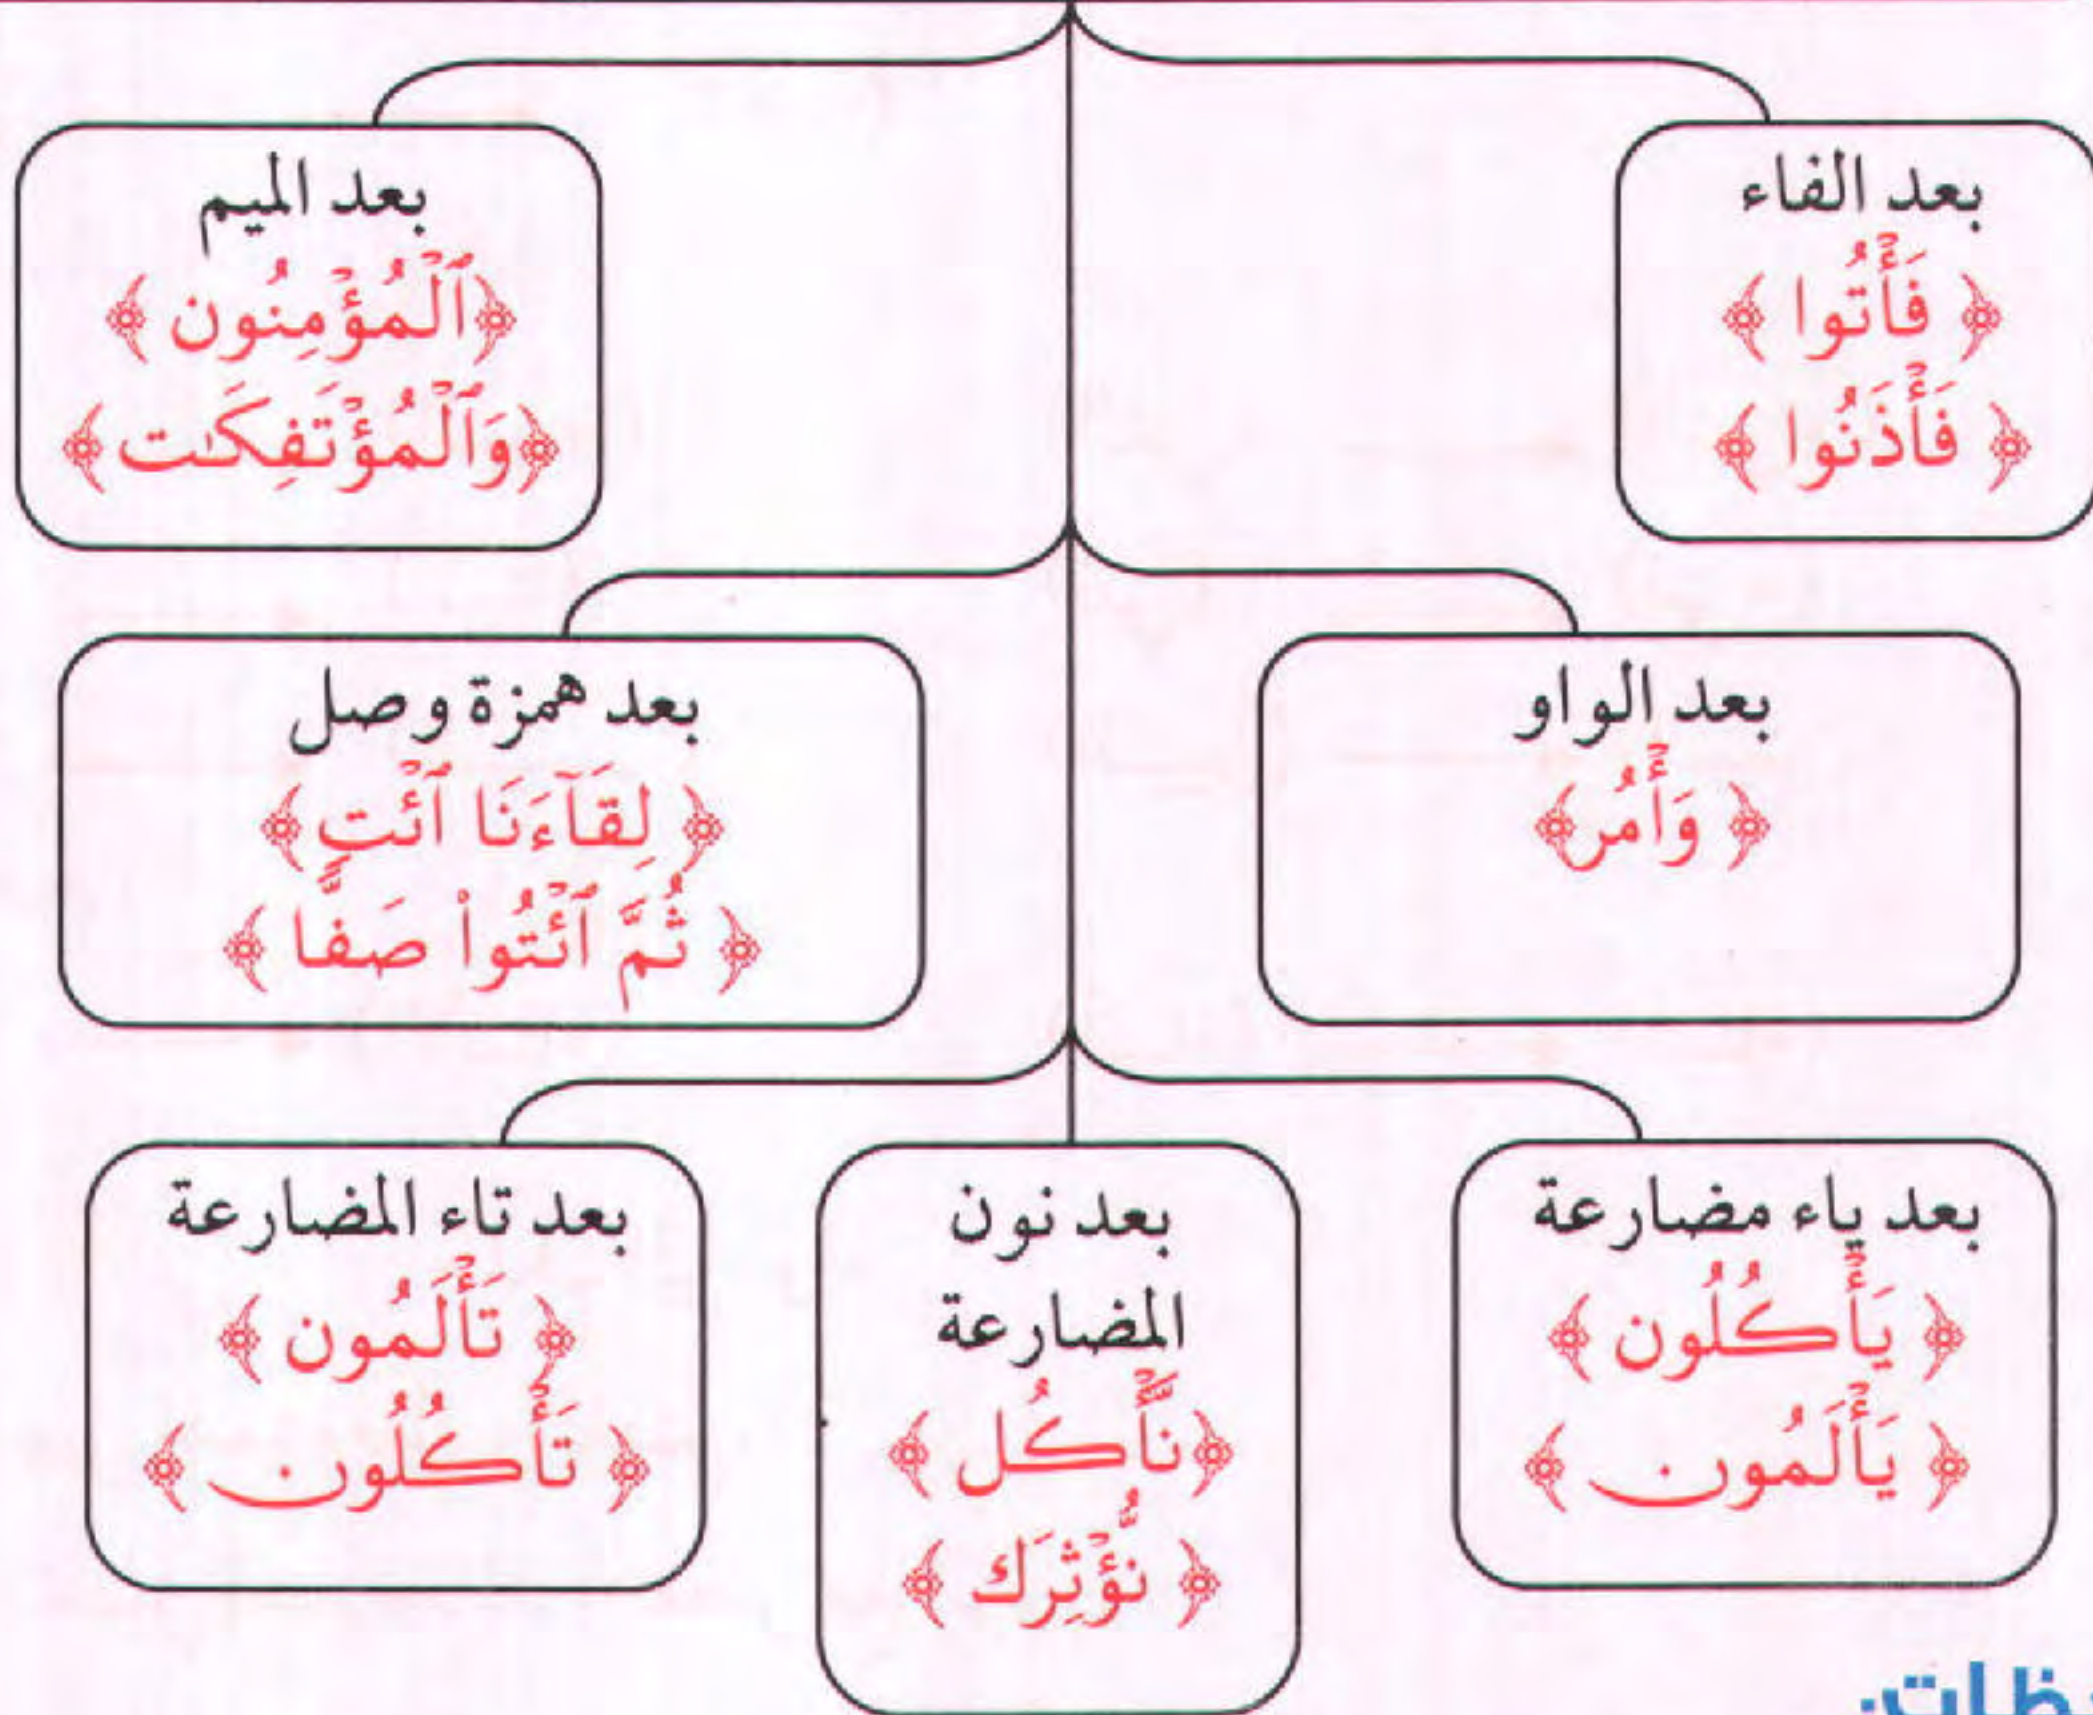 بعد الفاء
﴿ فَأْتُوا ﴾
﴿ فَأْذَنُوا ﴾
بعد الميم
﴿ٱلْمُؤْمِنُون ﴾
﴿وَٱلْمُؤْتَفِكَٰت﴾
بعد الواو
﴿ وَأْمُر﴾
بعد همزة وصل
﴿ لِقَآءَنَا ٱئْتِ﴾
﴿ ثُمَّ ٱئْتُوا۟ صَفًّا ﴾
بعد ياء مضارعة
﴿ يَأْكُلُون ﴾
﴿ يَأْلَمُون ﴾
بعد نون
المضارعة
﴿نَّأْكُل ﴾
﴿ نُّؤْثِرَك ﴾
بعد تاء المضارعة
﴿ تَأْلَمُون ﴾
﴿ تَأْكُلُون ﴾